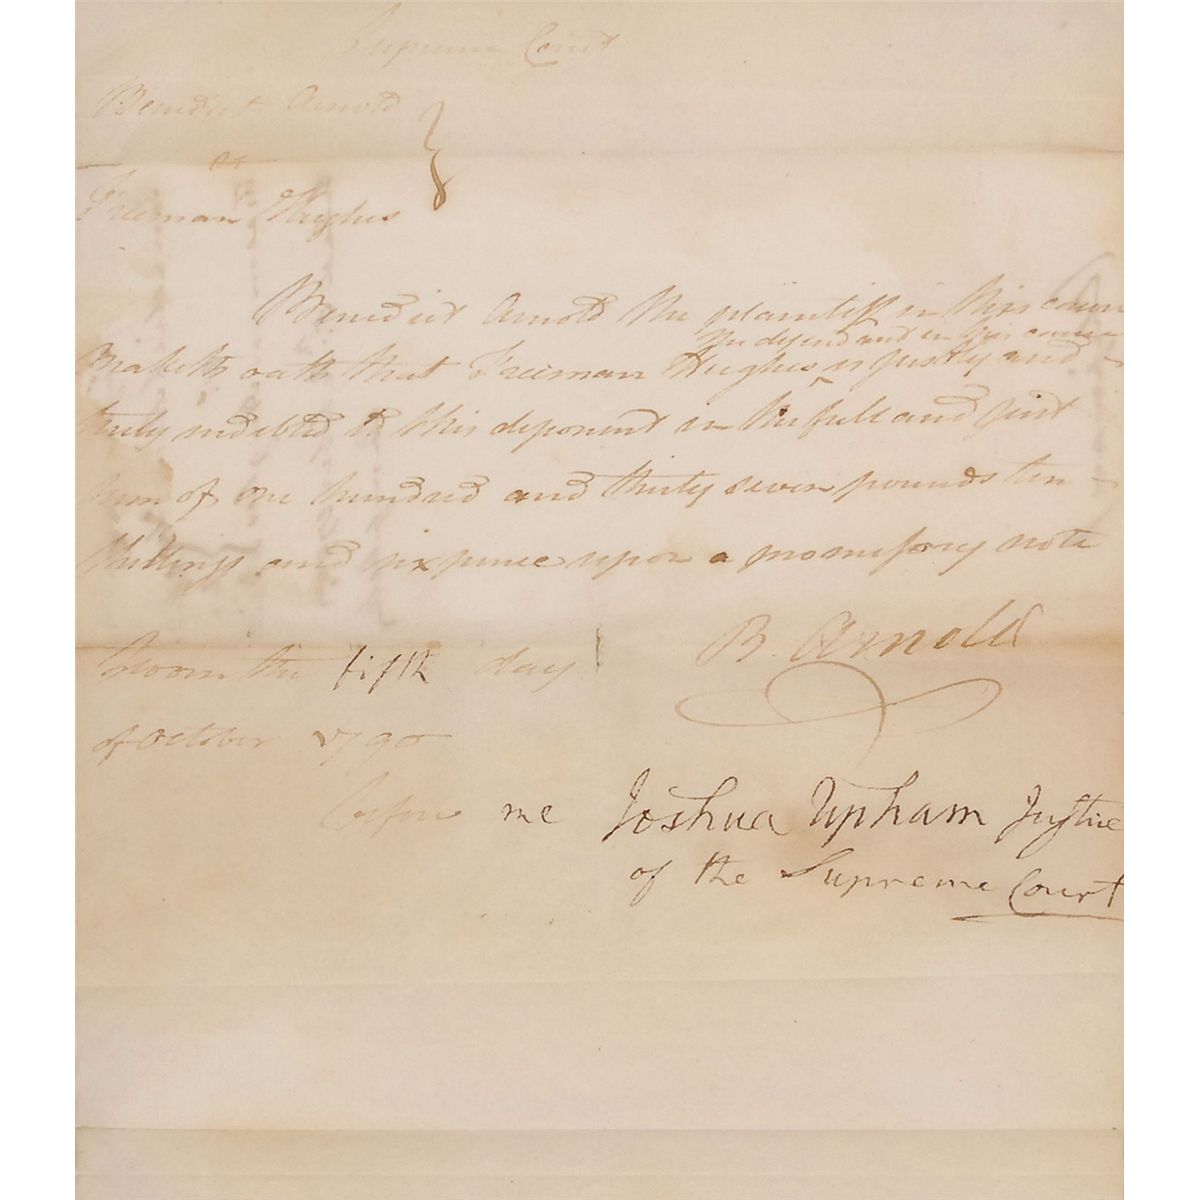 Supreme Court
Benedict Arnold
vs
Freeman Hughes
Benedict Arnold the plaintiff in this cause
the defendant in this cause
maketh oath that Freeman Hughes is justly and
truly indebted to this deponent in the full and just
sum of one hundred and thirty seven pounds ten
shillings and six pence upon a promissory note
B. Arnold
Sworn the fifth day
of October 1790
before me Joshua Upham Justice
of the Supreme Court